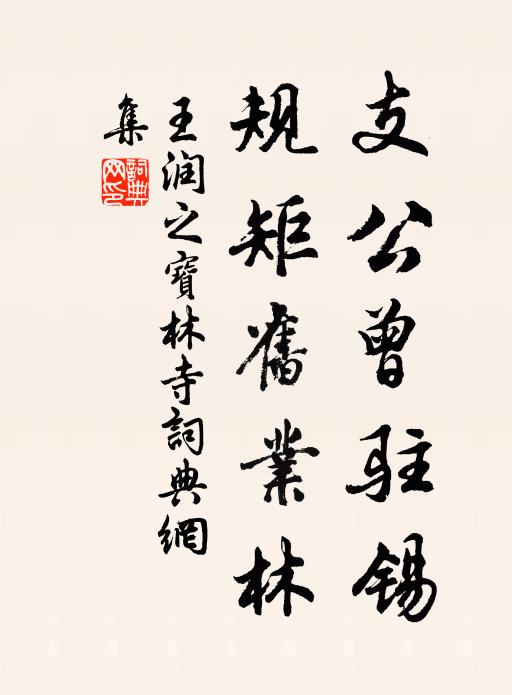 支公曾驻锡
规矩舊業林
王润之寶林寺詞典網
集
詞典
网印